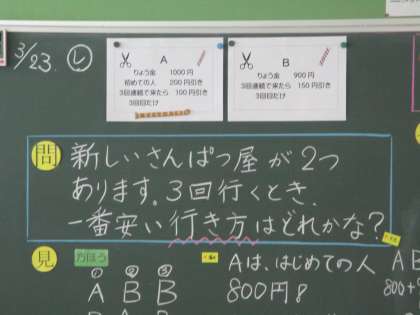 3/23. レ
A
りょう金 1000円
初めての人 200円引き
3回連続で来たら 100円引き
3回目だけ
B
りょう金 900円
3回連続で来たら 150円引き
3回目だけ
問
新しいさんぱつ屋が2つ
あります。3回行くとき、
一番安い行き方はどれかな?
見
方ほう
① ② ③
A B B
Aは、はじめての人
800円!
AB
800+